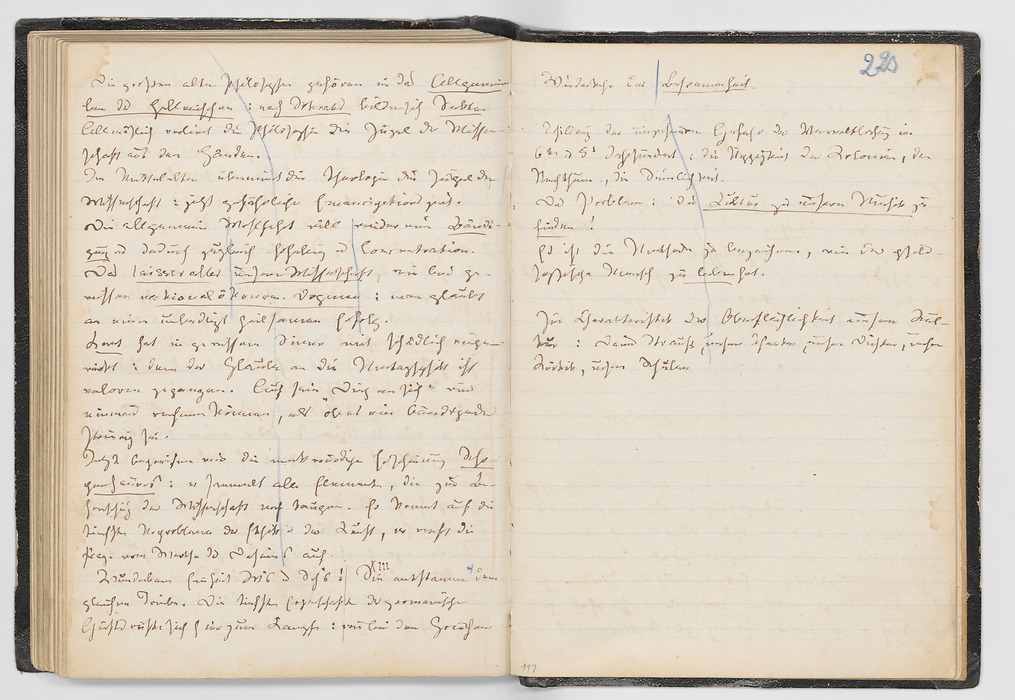 Die grossen alten Philosophen gehören in das Allgemein
leben des Hellenischen: nach Sokrates bilden sich Sekten.
Allmählich verliert die Philosophie die Zügel der Wissen
schaft aus den Händen.
Im Mittelalter übernimmt die Theologie die Zügel der
Wissenschaft: jetzt gefährliche Emancipationszeit.
Die allgemeine Wohlfahrt will wieder eine Bändi-
gung u. dadurch zugleich Erhöhung u. Concentration.
Das laisser aller unsrer Wissenschaft, wie bei ge-
wissen nationalökonom. Dogmen: man glaubt
an einen unbedingt heilsamen Erfolg.
Kant hat in gewissem Sinne mit schädlich einge-
wirkt: denn der Glaube an die Metaphysik ist
verloren gegangen. Auf sein „Ding an sich“ wird
niemand rechnen können, als ob es ein bändigendes
Princip sei.
Jetzt begreifen wir die merkwürdige Erscheinung Scho-
penhauers: er sammelt alle Elemente, die zur Be-
herrschung der Wissenschaft noch taugen. Er kommt auf die
tiefsten Urprobleme der Ethik u. der Kunst, er wirft die
Frage vom Werthe des Daseins auf.
Wunderbare Einheit W's u Sch's! Sie entstammen dem
gleichen Triebe. Die tiefsten Eigenschaften des germanischen
Geistes rüsten sich hier zum Kampfe: wie bei den Griechen
220
Wiederkehr der Besonnenheit.
Schilderung der ungeheuren Gefahr der Verweltlichung im
6ten u 5t Jahrhundert: die Üppigkeit der Kolonien, der
Reichthum, die Sinnlichkeit.
Das Problem: die Kultur zu unserer Musik zu
finden!
Es ist die Methode zu bezeichnen, wie der philo-
sophische Mensch zu leben hat.
Zur Charakteristik der Oberflächlichkeit unserer Kul-
tur: David Strauß, unsere Theater, unsere Dichter, unsere
Kritik, unsere Schulen